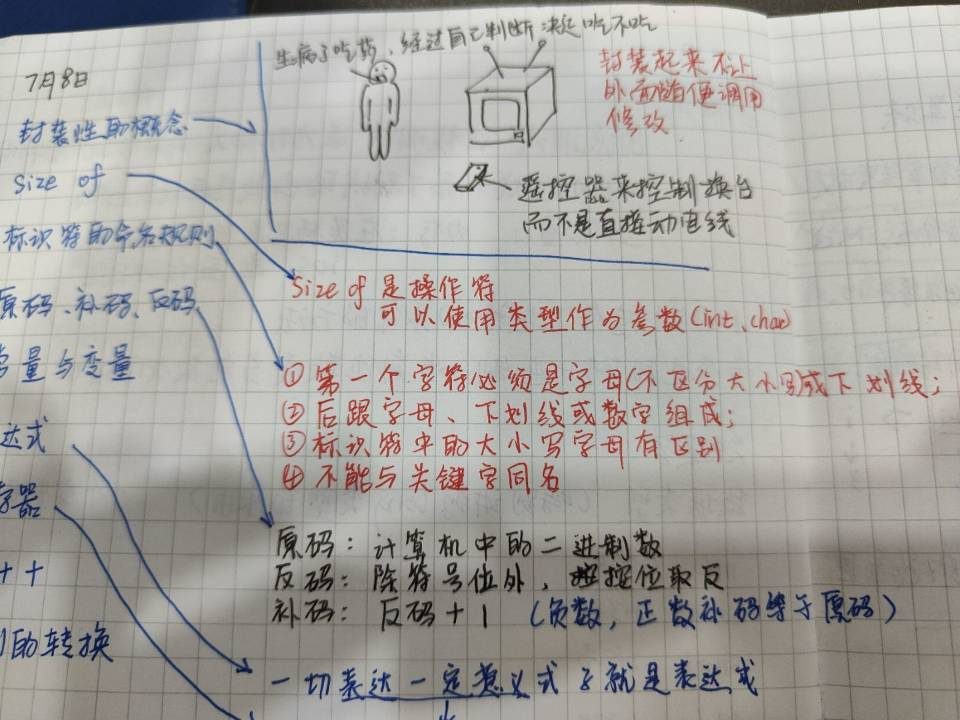 7月8日
生病了吃药，经过自己判断决定吃不吃
封装起来不让
外面随便调用
修改
封装性的概念
遥控器来控制换台
而不是直接动电线
size of
标识符的命名规则
size of 是操作符
可以使用类型作为参数(int、char)
原码、补码、反码
常量与变量
① 第一个字符必须是字母(不区分大小写)或下划线；
② 后跟字母、下划线或数字组成；
③ 标识符中的大小写字母有区别
④ 不能与关键字同名
达式
存器
原码：计算机中的二进制数
反码：除符号位外，按位取反
补码：反码+1（负数，正数补码等于原码）
++
的转换
一切表达一定意义式子就是表达式